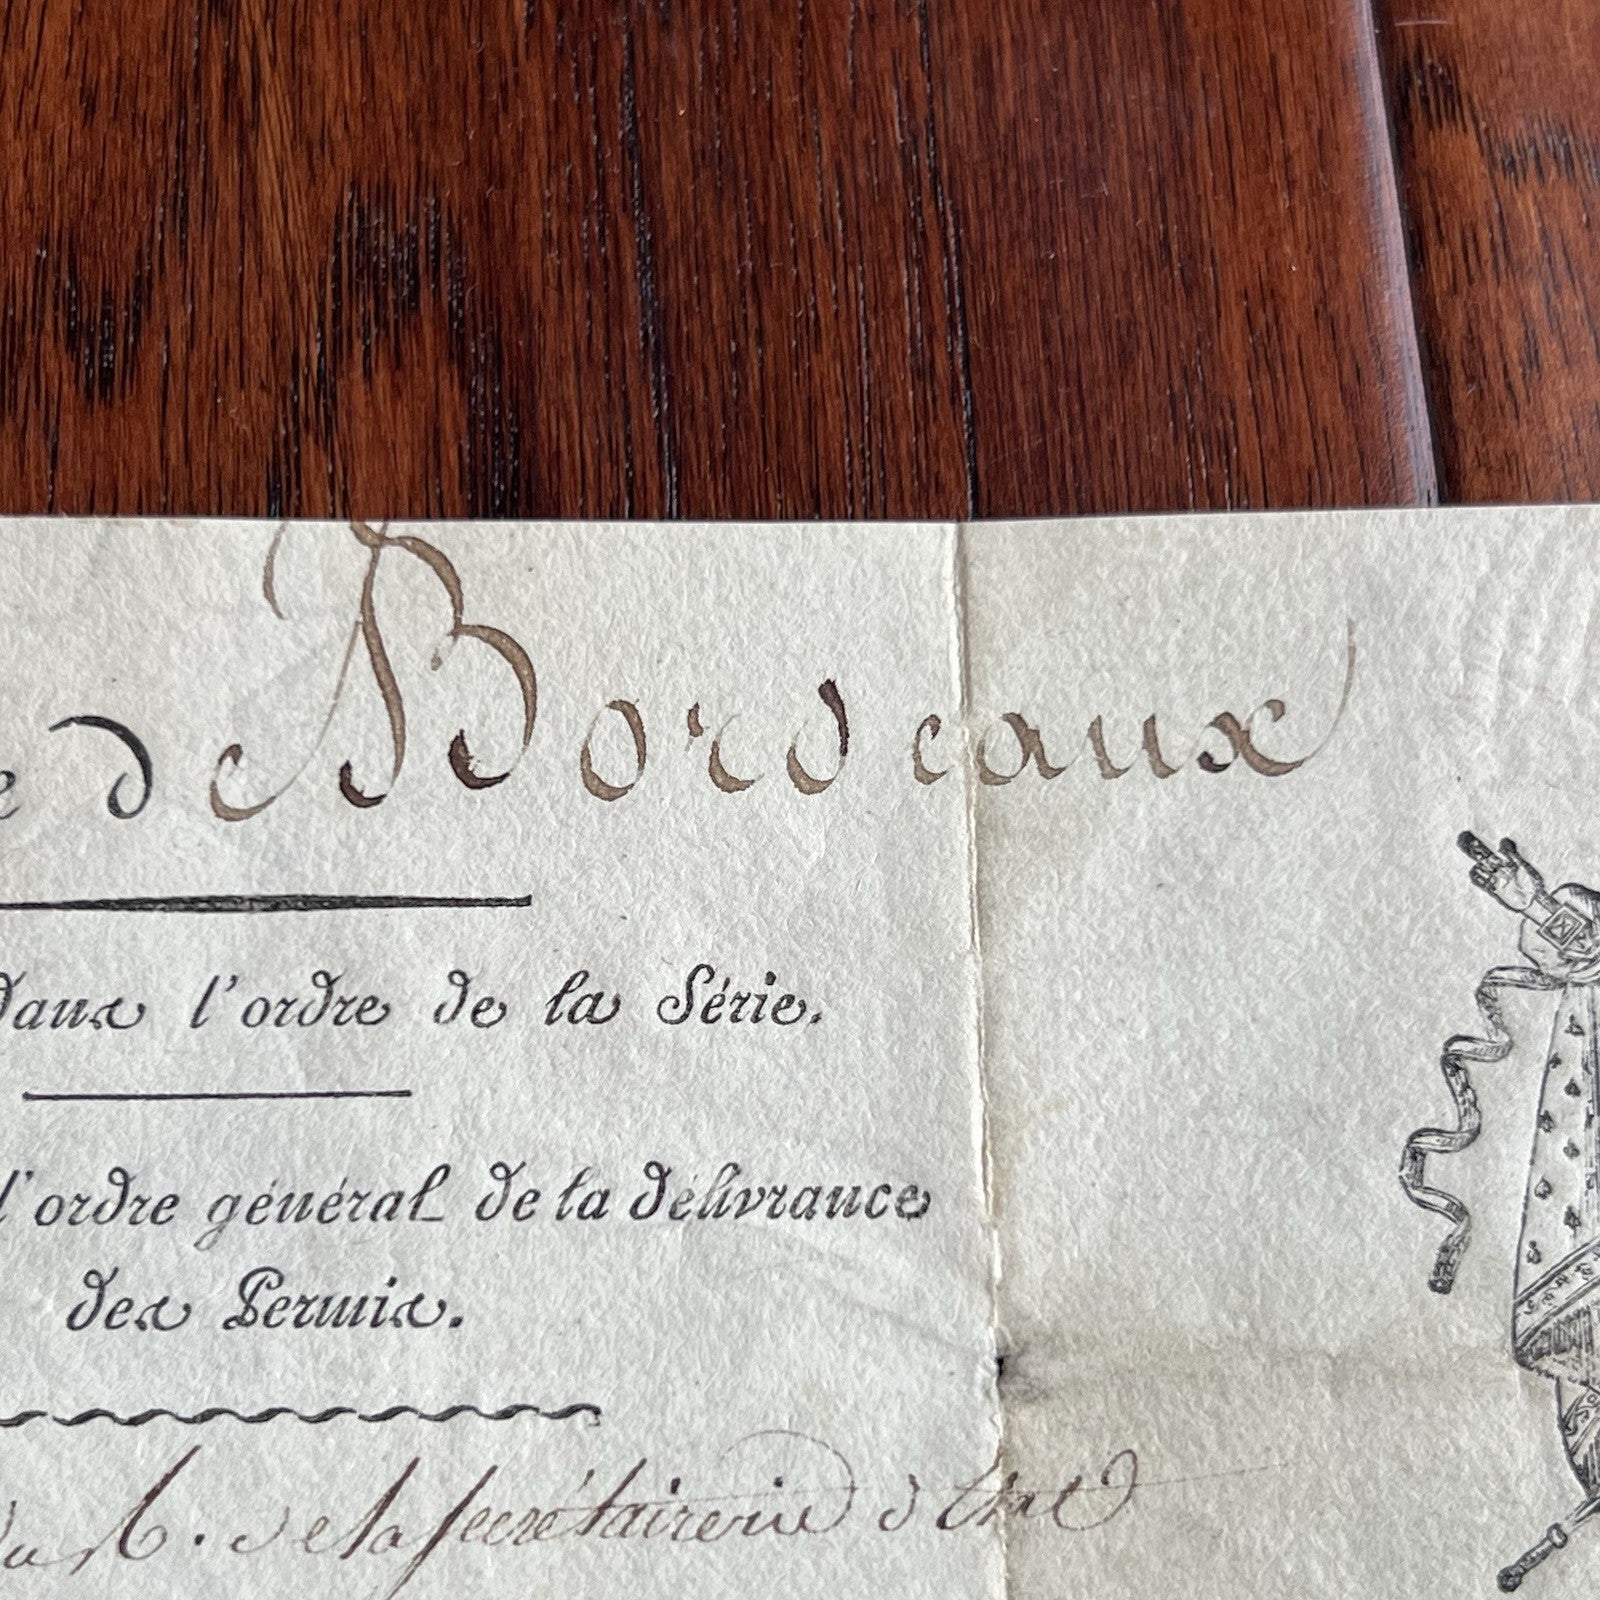 e de Bordeaux
dans l'ordre de la Série.
l'ordre général de la délivrance
des Permis.
de la secrétairerie d'Etat